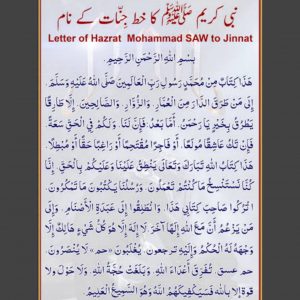 نبی کریم ﷺ کا خط جنّات کے نام
Letter of Hazrat Mohammad SAW to Jinnat
بِسْمِ اللهِ الرَّحْمٰنِ الرَّحِيْمِ
هٰذَا كِتَابٌ مِنْ مُحَمَّدٍ رَسُولِ رَبِّ الْعَالَمِينَ صَلَّى اللهُ عَلَيْهِ وَسَلَّمَ.
إِلَى مَنْ طَرَقَ الدَّارَ مِنَ الْعُمَّارِ. وَالزُّوَّارِ. وَالصَّالِحِينَ. إِلَّا طَارِقًا
يَطْرُقُ بِخَيْرٍ يَا رَحْمٰنُ. أَمَّا بَعْدُ: فَإِنَّ لَنَا. وَلَكُمْ فِي الْحَقِّ سَعَةً
فَإِنْ تَكُ عَاشِقًا مُولَعًا. أَوْ فَاجِرًا مُقْتَحِمًا أَوْ رَاغِبًا حَقًّا أَوْ مُبْطِلًا.
هٰذَا كِتَابُ اللهِ تَبَارَكَ وَتَعَالَى يَنْطِقُ عَلَيْنَا وَعَلَيْكُمْ بِالْحَقِّ. إِنَّا
كُنَّا نَسْتَنْسِخُ مَا كُنْتُمْ تَعْمَلُونَ. وَرُسُلُنَا يَكْتُبُونَ مَا تَمْكُرُونَ.
اُتْرُكُوا صَاحِبَ كِتَابِي هٰذَا. وَانْطَلِقُوا إِلَى عَبَدَةِ الْأَصْنَامِ. وَإِلَى
مَنْ يَزْعُمُ أَنَّ مَعَ اللهِ إِلٰهًا آخَرَ لَا إِلٰهَ إِلَّا هُوَ كُلُّ شَيْءٍ هَالِكٌ إِلَّا
وَجْهَهُ لَهُ الْحُكْمُ وَإِلَيْهِ تُرْجَعُونَ. يُغْلَبُونَ «حم» لَا يُنْصَرُونَ.
حم عسق. تُفَرِّقَ أَعْدَاءَ اللهِ. وَبَلَغَتْ حُجَّةُ اللهِ. وَلَا حَوْلَ وَلَا
قُوَّةَ إِلَّا بِاللهِ فَسَيَكْفِيكَهُمُ اللهُ وَهُوَ السَّمِيعُ الْعَلِيمُ.